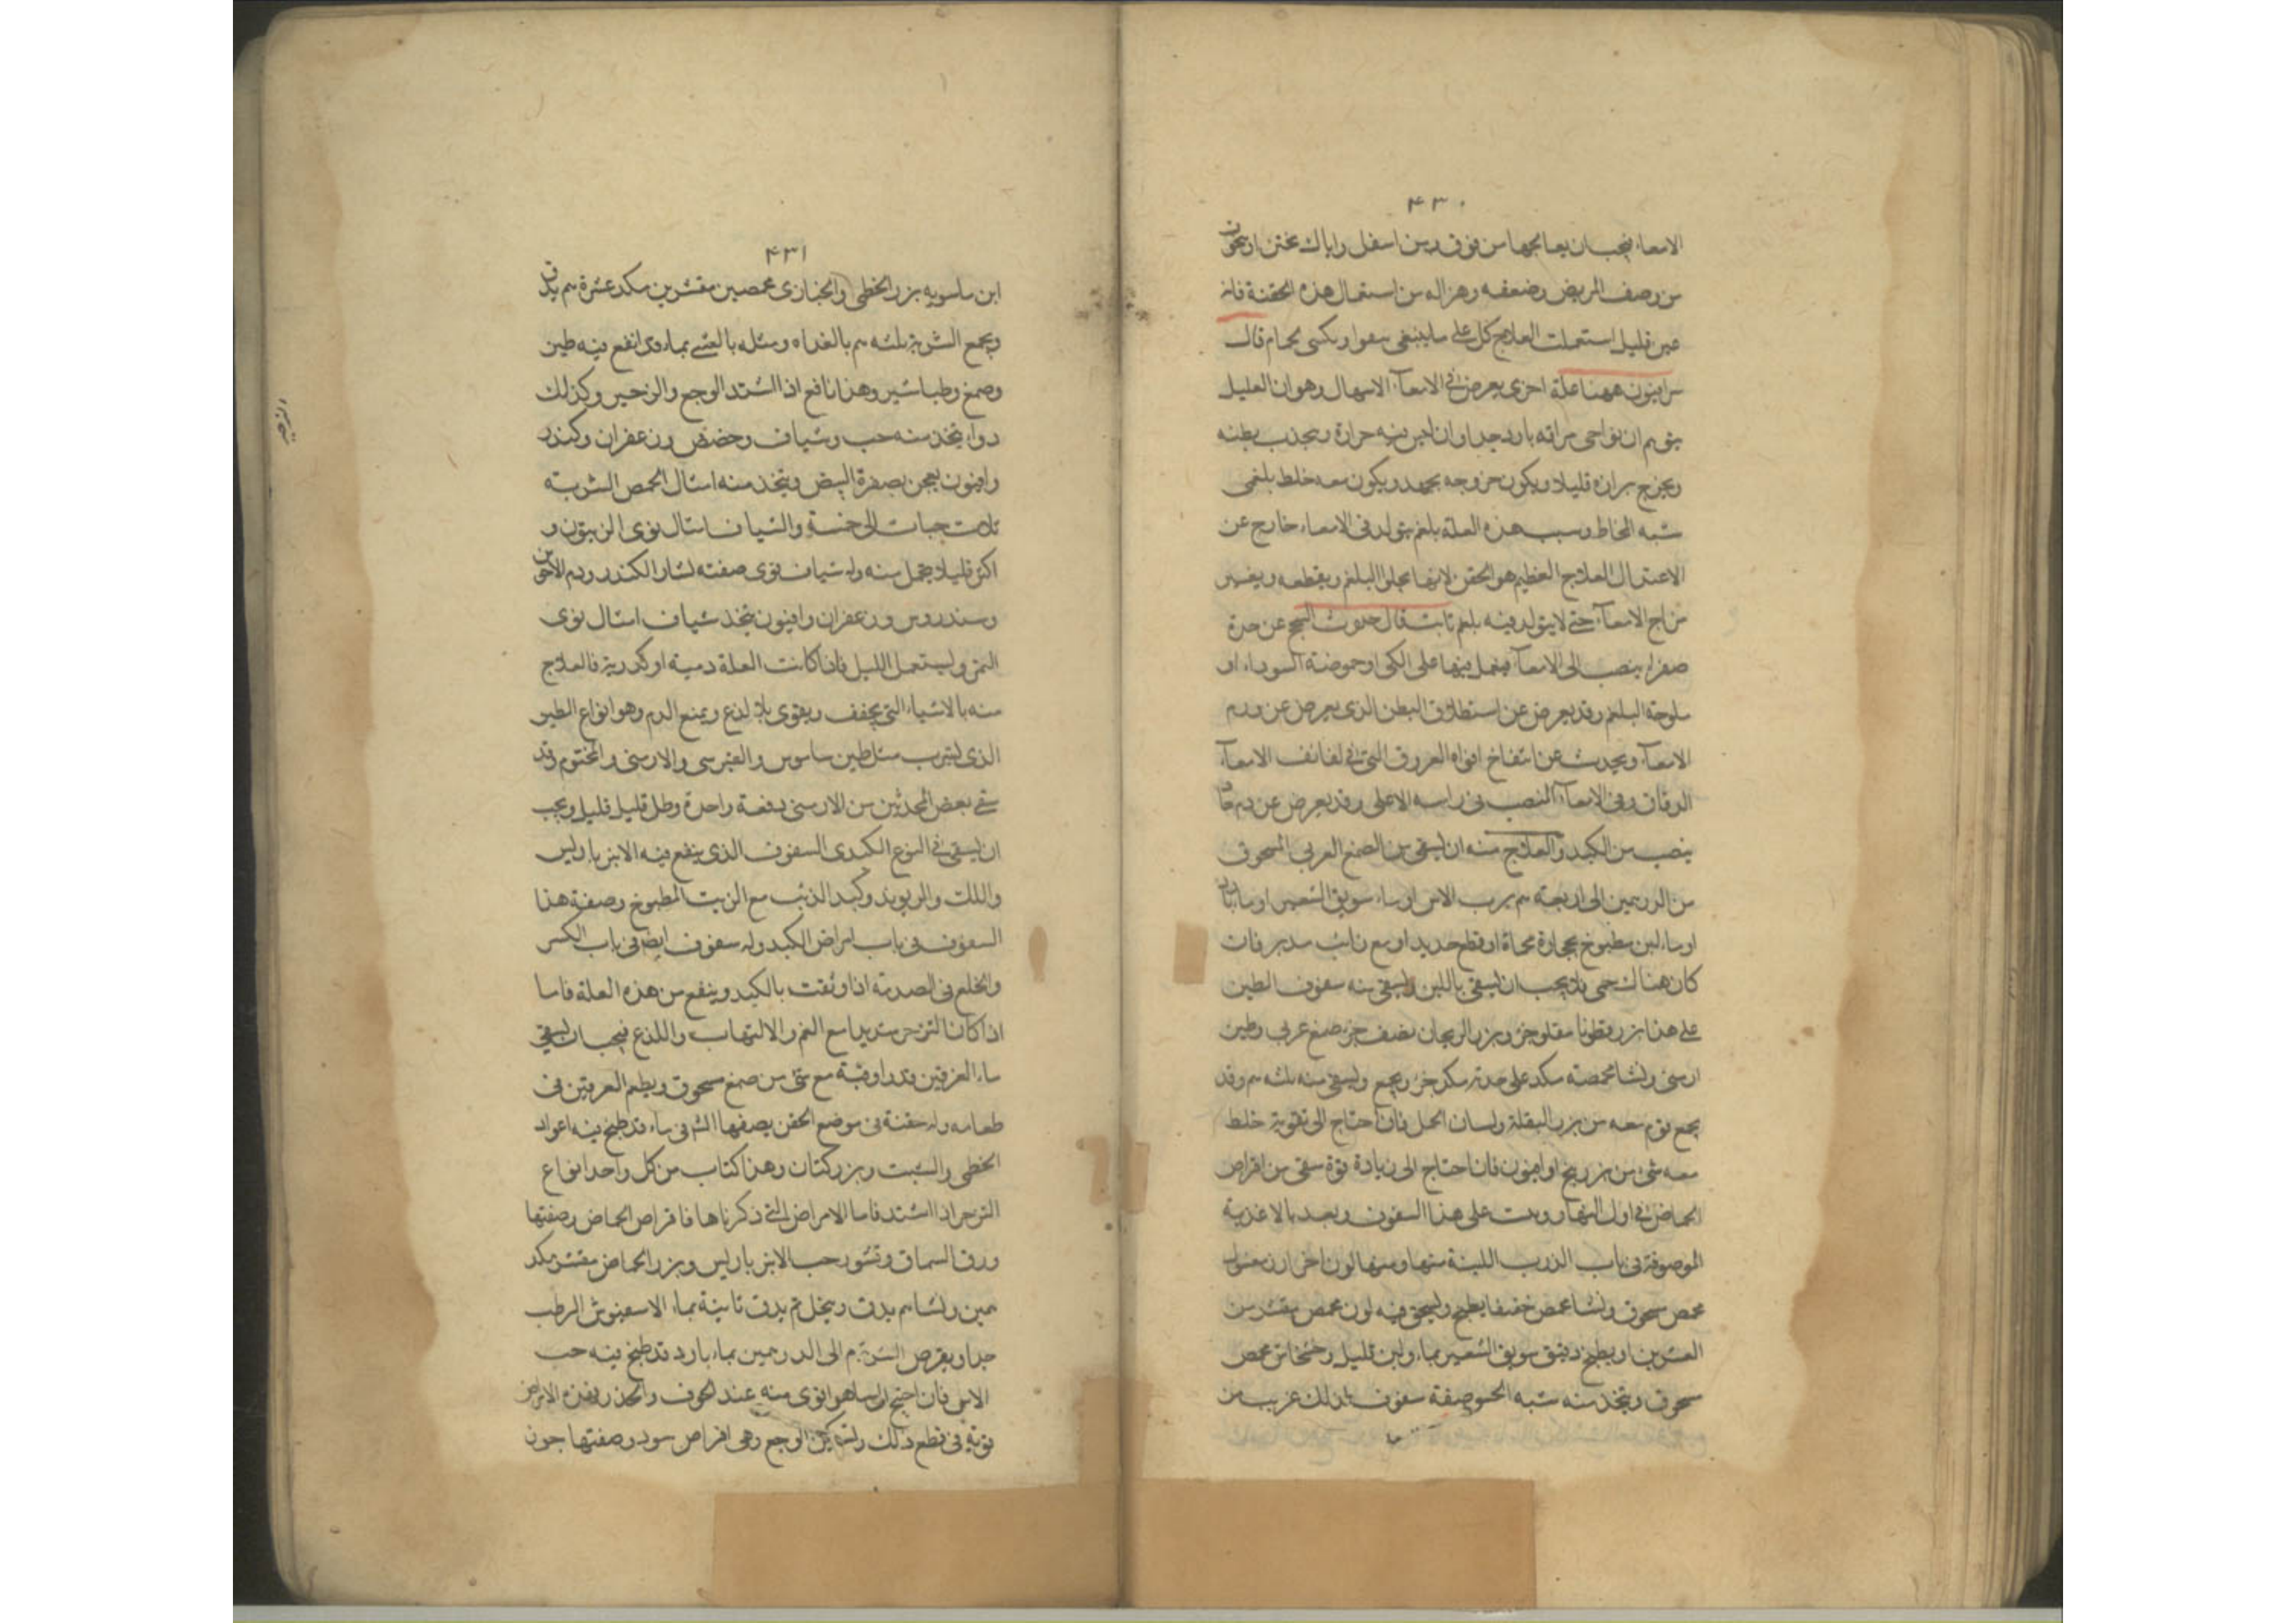 ۴۳۰
الامعاء فيجب ان يعالجها من فوق ومن اسفل واياك تختن او تتخوف
من وصف المريض وضعفه وهزاله من استعمال هذه الحقنة فانه
عين قليل استعملت العلاج كل على ما ينبغى قال
سرابيون ههنا علة اخرى يعرض فى الامعآء الاسهال وهو ان العليل
يتوهم ان نواحى مراقه بارد جدا وان ليس فيه حرارة وتجذب بطنه
ويخرج برازه قليلا ويكون خروجه بجهد ويكون معه خلط بلغمى
شبه المخاط وسبب هذه العلة بلغم يتولد فى الامعاء خارج عن
الاعتدال العلاج العظيم هو الحقن لانها تجلوا البلغم ويقطعه ويغير
مزاج الامعآء حتى لا يتولد فيه بلغم ثابت قال حدوث السحج عن حدة
صفراء ينصب الى الامعآ فيعمل فيها عمل الكى او حموضة السوداء او
ملوحة البلغم وقد يعرض عن استطلاق البطن الذى يعرض عن ورم
الامعآ ويحدث عن انتفاخ افواه العروق التى فى لفائف الامعآ
الدقاق وفى الامعآ النصب فى راسه الاعلى وقد يعرض عن دم
ينصب من الكبد والعلاج منه ان يسقى من الصمغ العربى المسحوق
من الدرهمين الى اربعة م برب الاس او ماء سويق الشعير او ماء
او ماء لبن مطبوخ بحجارة محماة او قطع حديد او مع رائب مدبر فان
كان هناك حمى فلا يجب ان يسقى باللبن ويسقى منه سفوف الطين
على هذا بزر قطونا مقلو جزو بزر الريحان نصف جزء صمغ عربى وطين
ارمنى ونشا محمصة مكد على حدته مكد جزء ويجمع ويسقى منه ثلثه م وقد
يجمع قوم معه من بزر البقلة ولسان الحمل فان احتاج الى تقوية خلط
معه شئ من بزر بنج او افيون فان احتاج الى زيادة قوة سقى من اقراص
الحماض فى اول النهار وبت على هذا السفوف وبعد بالاغذية
الموصوفة فى باب الذرب اللينة منها ومنها لون اخر ارز مغسول
محمص مسحوق ونشا محمص خفيفا يطبخ ويسحق فيه لون محمص مقشر من
القشرين او يطبخ دقيق سويق الشعير بماء ولبن قليل وخشخاش محمص
مسحوق ويتخذ منه شبه الحسو صفة سفوف بذلك عزيب من
۴۳۱
ابن ماسويه بزر الخطمى والخبازى محمصين مقشرين مكد عشرة م يدق
ويجمع الشربة ثلثه م بالغداه ومثله بالعشى بماء قد انقع فيه طين
وصمغ وطباشير وهذا نافع اذا اشتد الوجع والزحير وكذلك
دواء يتخذ منه حب وشياف وحضض وزعفران وكندر
وافيون يعجن بصفرة البيض ويتخذ منه امثال الحمص الشربة
ثلاث حبات الى خمسة والشياف امثال نوى الزيتون و
اكثر قليلا يتحمل منه وله شياف قوى صفته قشار الكندر ودم الاخوين
وسندروس وزعفران وافيون يتخذ شياف امثال نوى
التمر ويستعمل الليل فان كانت العلة دمية او كدرية فالعلاج
منه بالاشياء التى يجفف ويقوى بلا لذع ويمنع الدم وهو انواع الطين
الذى يشرب مثل طين ساموس والقبرسى والارمنى والمختوم وقد
سقى بعض المحدثين من الارمنى دفعة واحدة وطل قليل قليل ويجب
ان يسقى فى النوع الكبدى السفوف الذى يقع فيه الانبرباريس
واللك والريوند وكبد الذئب مع الزيت المطبوخ وصفة هذا
السفوف فى باب امراض الكبد وله سفوف ايض فى باب الكسر
والخلع فى الصدمة اذا وقعت بالكبد وينفع من هذه العلة فاما
اذا كان التزحر شديدا مع الغم والالتهاب واللذع فيجب ان يسقى
ماء العرقين قدر اوقية مع شئ من صمغ مسحوق ويطعم العرقين فى
طعامه وله حقنة فى موضع الحقن يصفها الشرفى ماء قد طبخ فيه اعواد
الخطمى والشبت وبزر كتان وهذا كتاب من كل واحد انواع
التزحر اذا اشتد فاما الامراض التى ذكرناها فاقراص الحماض وصفتها
ورق السماق وقشور حب الانبرباريس وبزر الحماض مقشر مكد
م يدق وينخل ثم يدق ثانية بماء الاسفيوش الرطب
جدا ويقرص الشربة م الى الدرهمين بماء بارد قد طبخ فيه حب
الاس فان احتيج الى ما هو اقوى منه عند الخوف والحذر الاقراص
قوية فى قطع ذلك وتسكين الوجع وهى اقراص سود وصفتها جون
الزحير